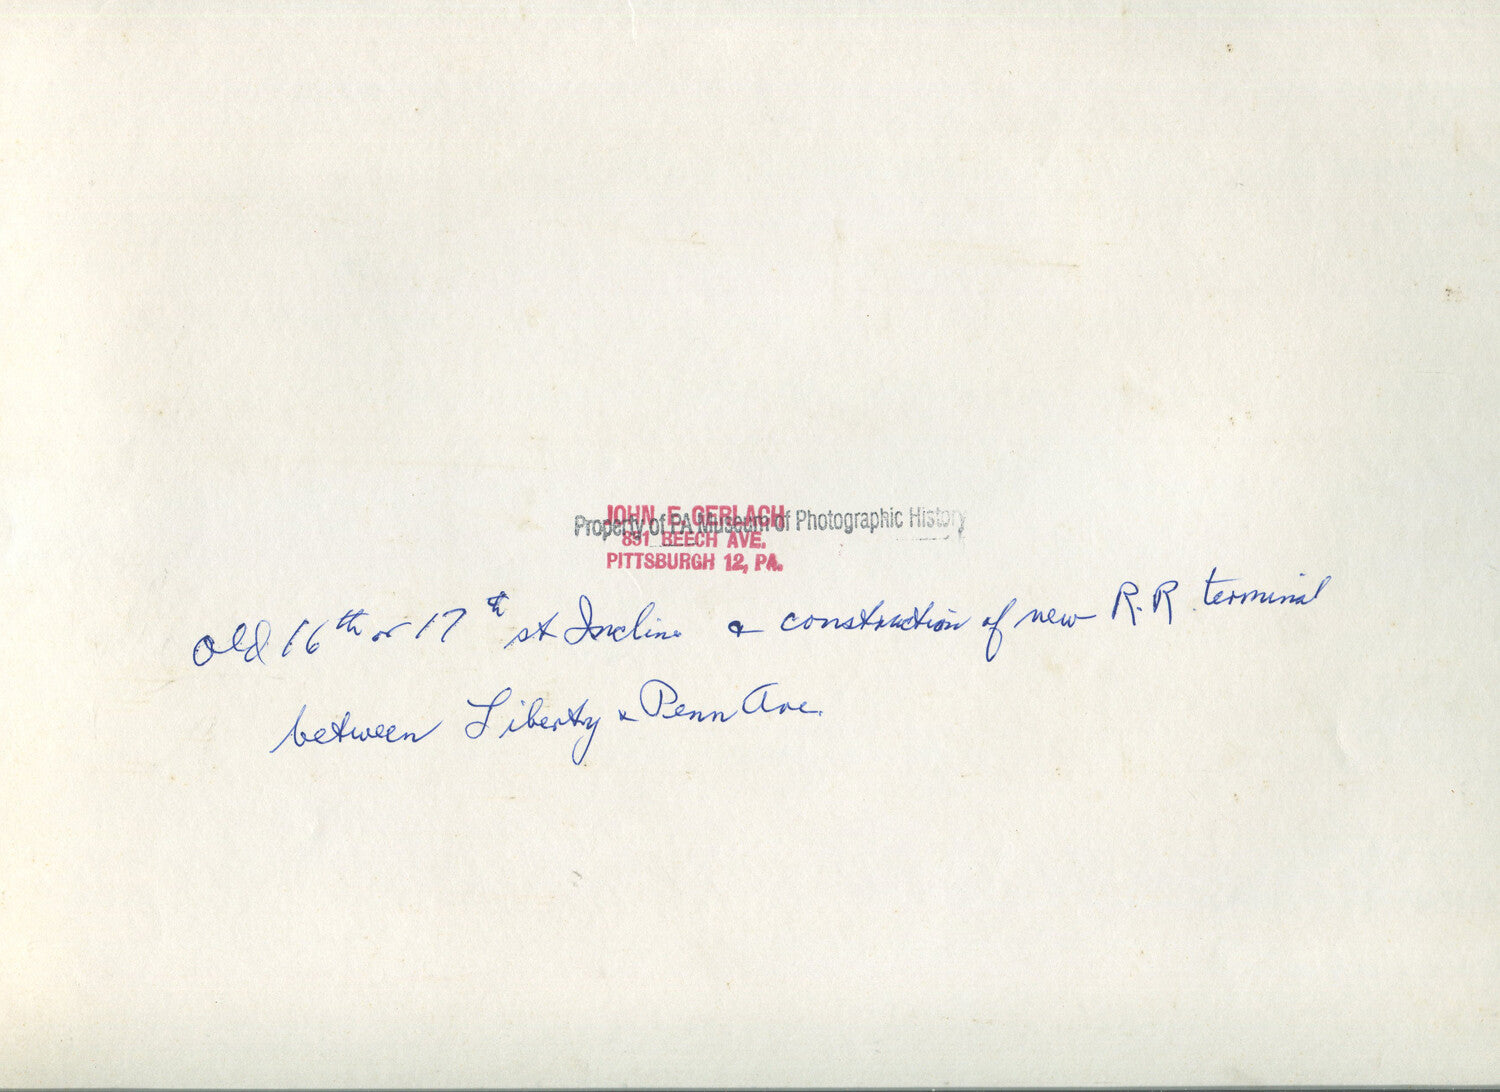 JOHN E. GERLACH
Property of PA Museum of Photographic History
891 BEECH AVE.
PITTSBURGH 12, PA.
Old 16th or 17th st Incline & construction of new R.R terminal
between Liberty & Penn Ave.